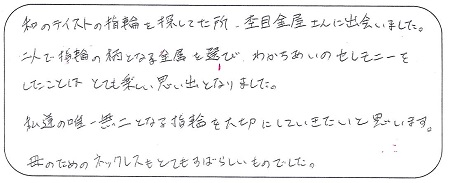 和のテイストの指輪を探してた所、杢目金屋さんに出会いました。
二人で指輪の柄となる金属を選び、わかちあいのセレモニーを
したことはとても楽しい思い出となりました。
私達の唯一無二となる指輪を大切にしていきたいと思います。
母のためのネックレスもとてもすばらしいものでした。